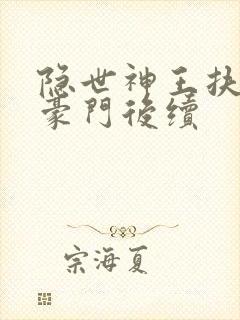 隐世神王扶
豪門後續
宗海夏